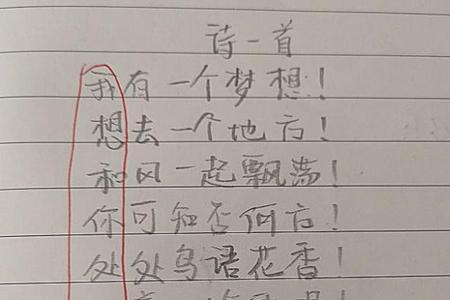 诗一首
我有一个梦想！
想去一个地方！
和风一起飘荡！
你可知否何方！
处处鸟语花香！